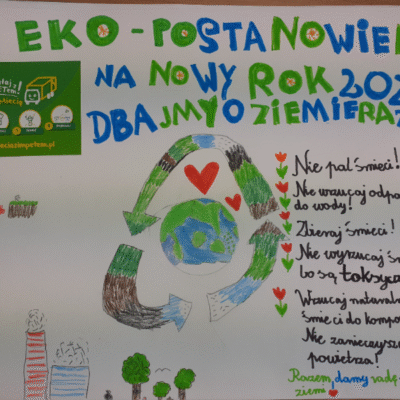 EKO-POSTANOWIE
NA NOWY ROK 202
DBAJMY O ZIEMIE RAZ
Nie pal śmieci!
Nie wrzucaj odpa
do wody!
Zbieraj śmieci!
Nie wyrzucaj śm
bo są toksycz
Wrzucaj natural
śmieci do kompo
Nie zanieczyszc
powietrza!
Razem, damy radę
ziemi